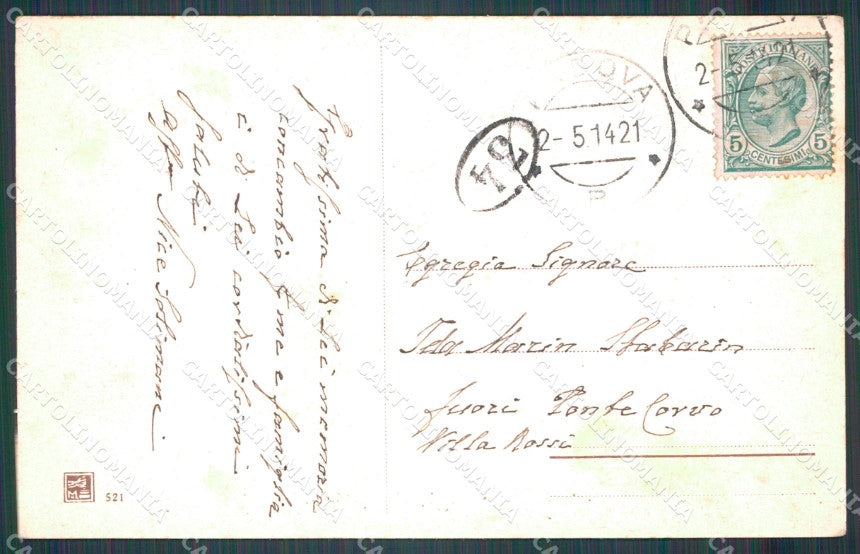 gratissima di Lei memoria
contambio & me e famiglia
i di Lei cordialissimi
saluti
affma Nice Solimani
Egregia Signora
Ida Marin Stabarin
fuori Ponte Corvo
Villa Rossi
2-5.1421
34
2-5
POSTE ITALIANE
5 5
CENTESIMI
521
CARTOLINOMANIA